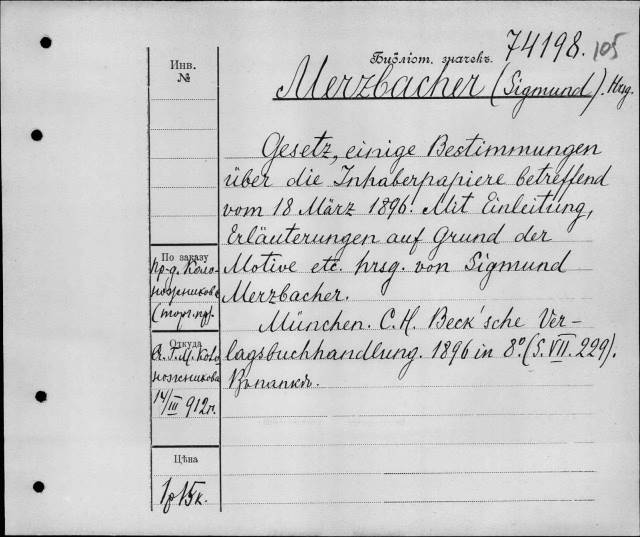 74198. 105
Библіот. значекъ
Merzbacher (Sigmund). Hrsg.
Инв.
№
Gesetz, einige Bestimmungen
über die Inhaberpapiere betreffend
vom 18 März 1896. Mit Einleitung,
Erläuterungen auf Grund der
Motive etc. hrsg. von Sigmund
Merzbacher.
München. C. H. Beck'sche Ver-
lagsbuchhandlung. 1896 in 8º. (S. VII. 229).
По заказу
пр-д. Коло-
Откуда
14/III 912 г.
Цѣна
1р 15к.